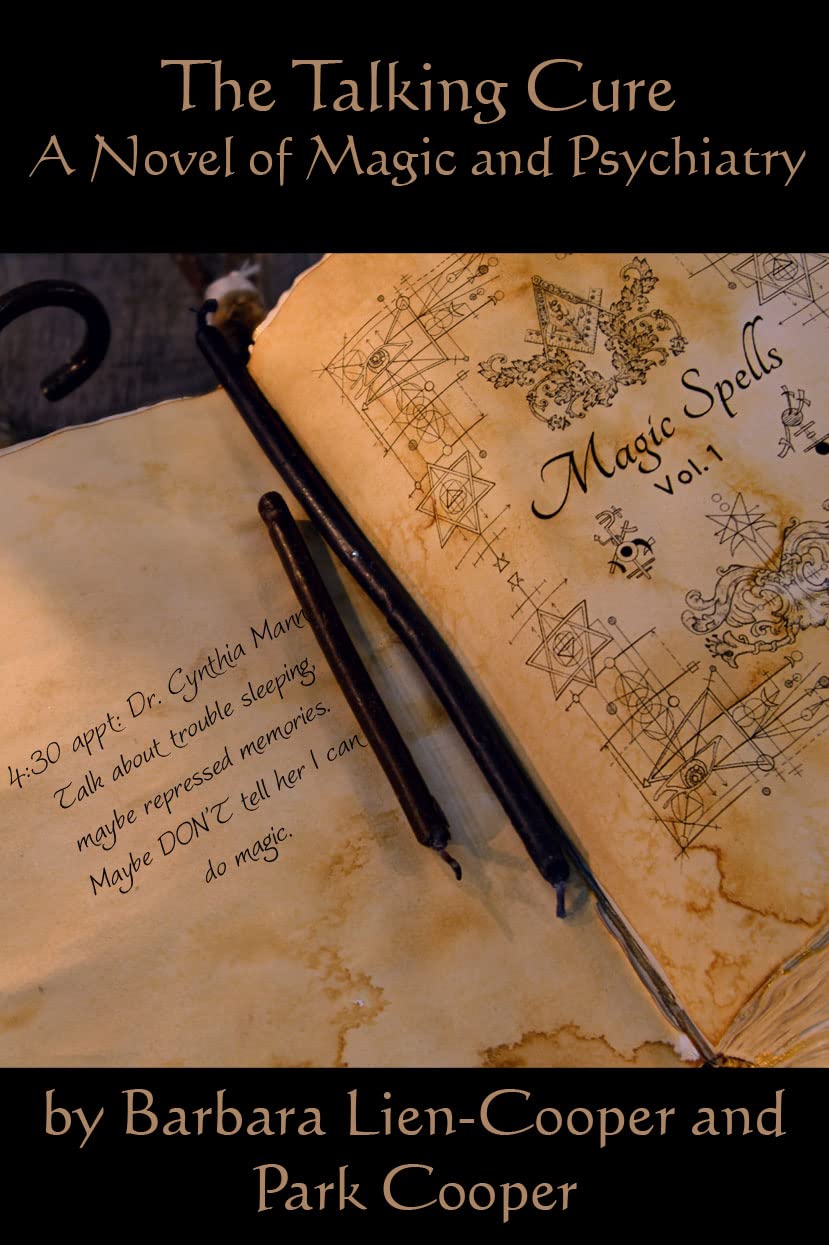 The Talking Cure
A Novel of Magic and Psychiatry
Magic Spells
Vol. 1
4:30 appt: Dr. Cynthia Mann
Talk about trouble sleeping,
maybe repressed memories.
Maybe DON'T tell her I can
do magic.
by Barbara Lien-Cooper and
Park Cooper